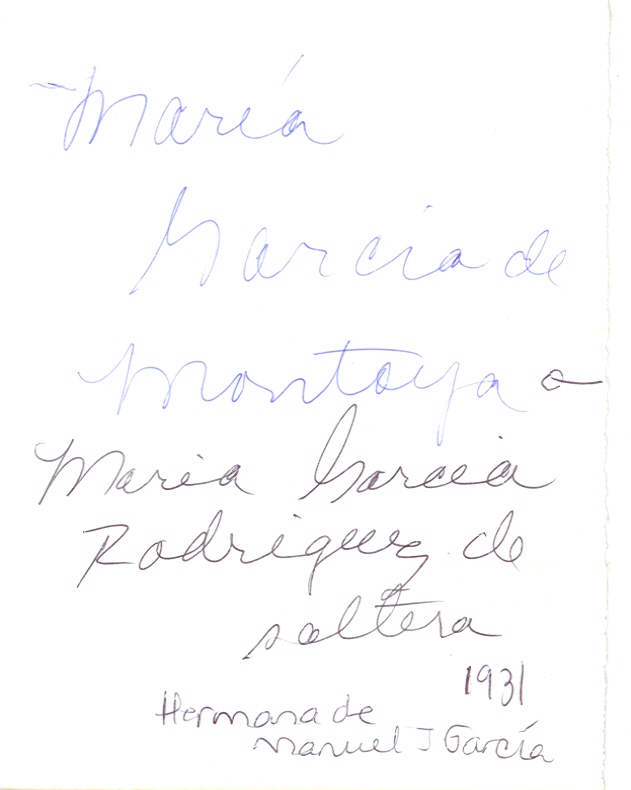 María
Garcia de
Montoya o
Maria Garcia
Rodriguez de
soltera
1931
Hermana de
Manuel J García